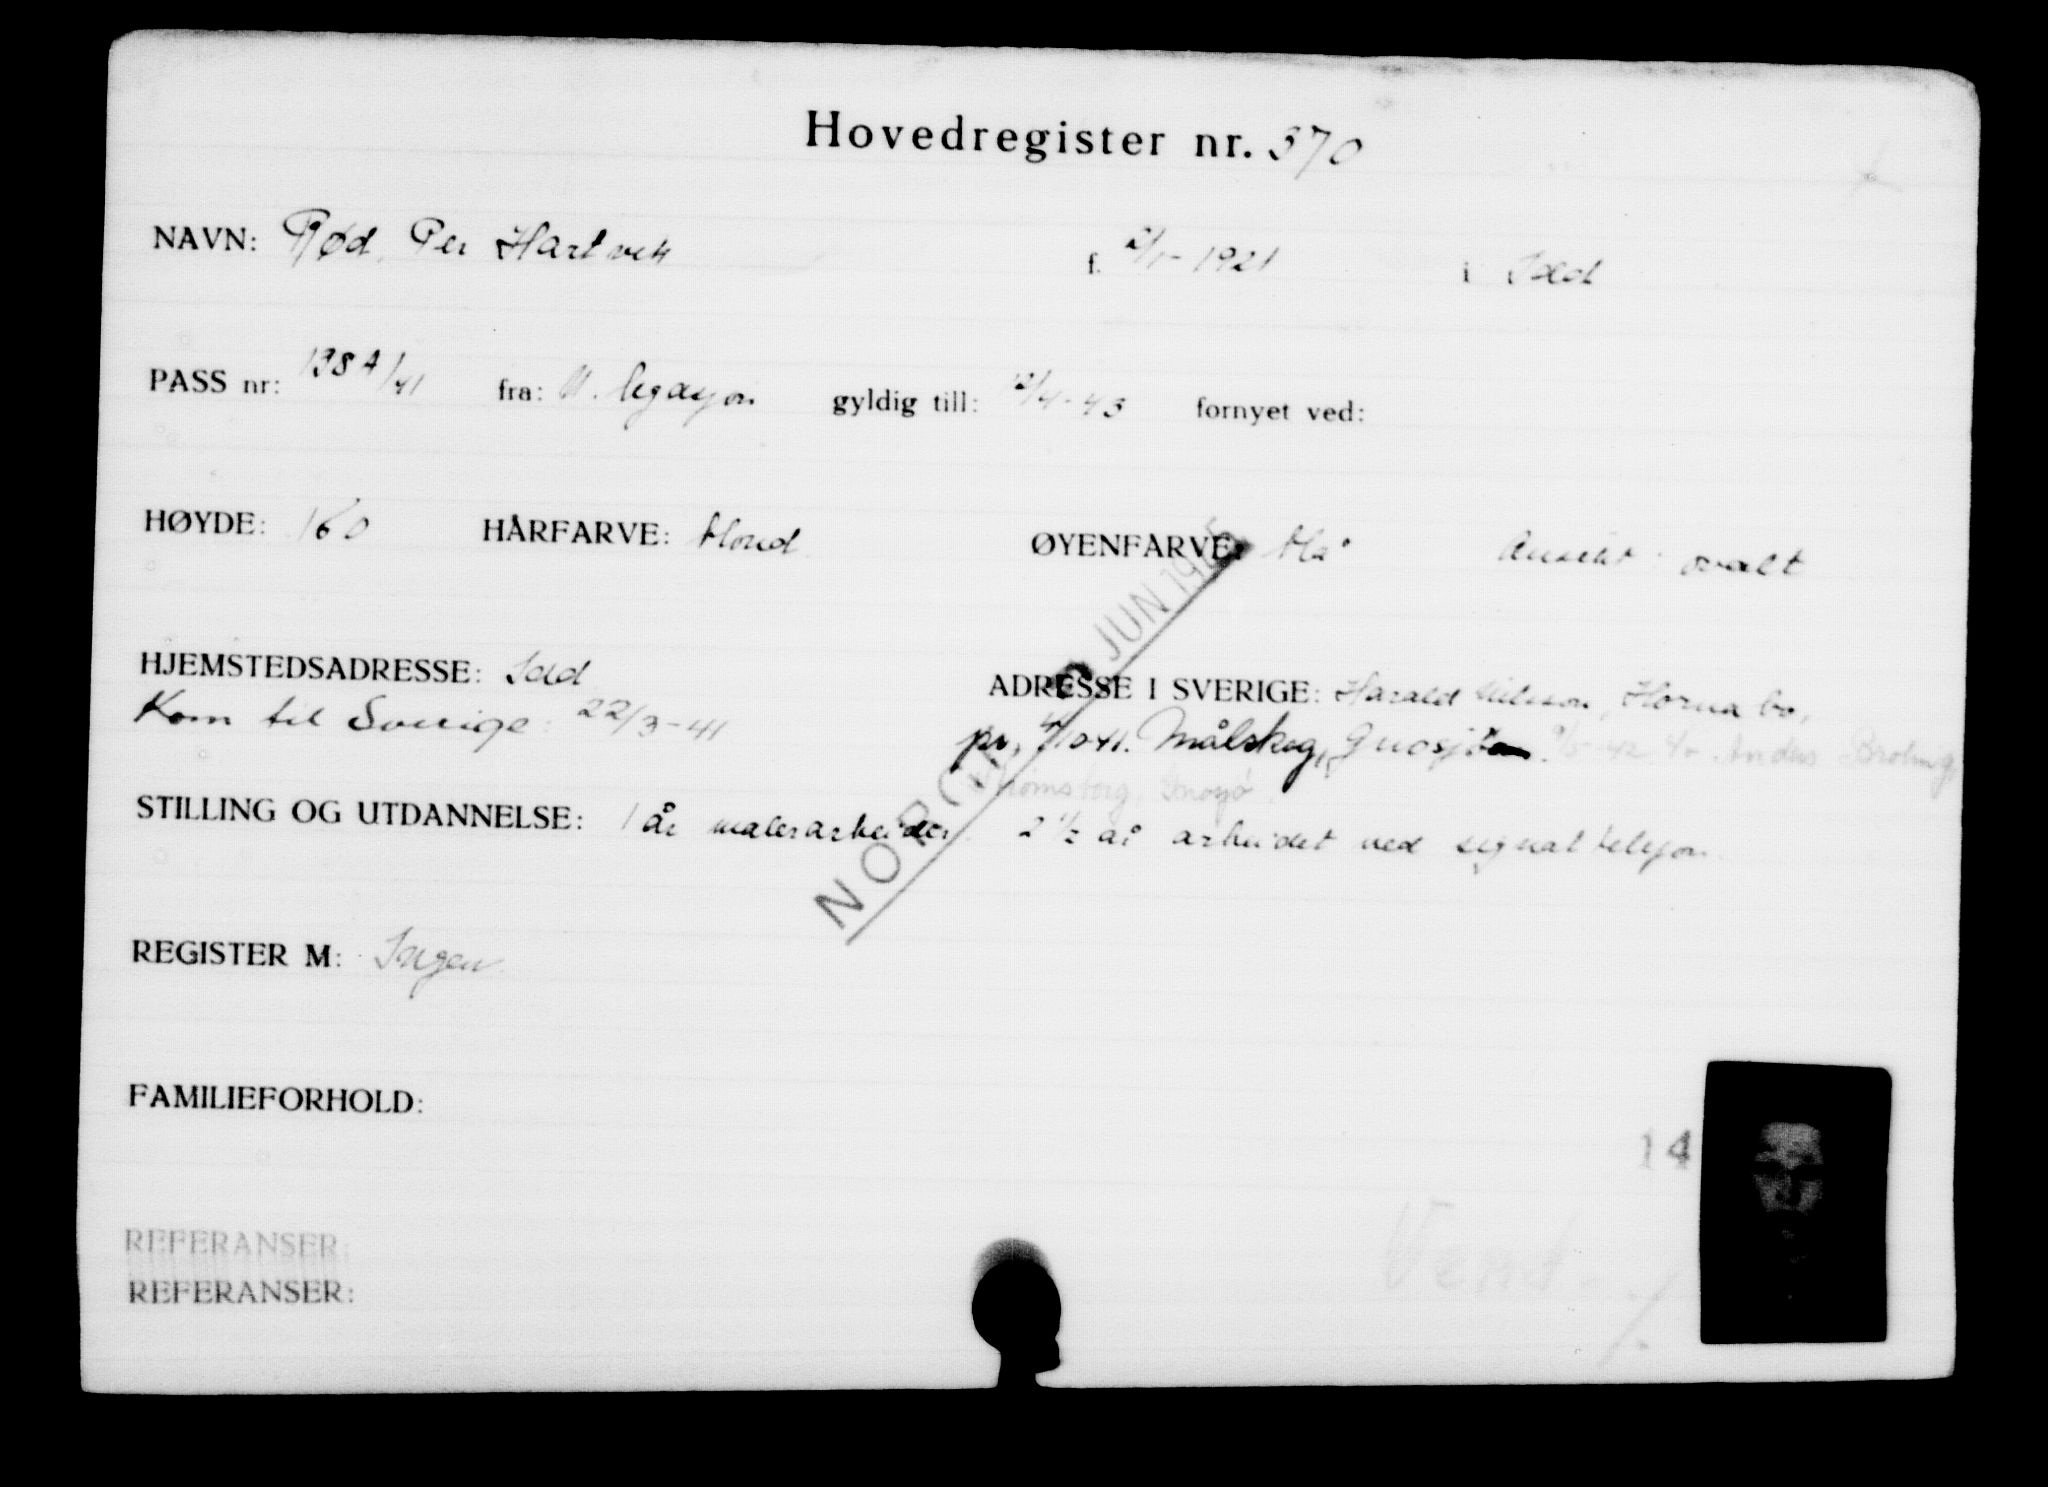 Hovedregister nr. 370
NAVN: Rød, Per Hartvik f. 2/1-1921 i Idd
PASS nr: 1384/41 fra: N. legasjon gyldig till: 2/4-43 fornyet ved:
HØYDE: 160 HÅRFARVE: blond ØYENFARVE: blå Ansikt: ovalt
HJEMSTEDSADRESSE: Idd ADRESSE I SVERIGE: Harald Nilsson, Hornabo,
Kom til Sverige: 22/3-41 pr. 4/10 41. Målskog, Gnosjö 9/5-42 Anders Broling,
Strömsborg, Gnosjö.
STILLING OG UTDANNELSE: 1 år malerarbeider. 2 1/2 år arbeidet ved signal telefon
NORGE JUN 194
REGISTER M: Ingen
FAMILIEFORHOLD:
14
REFERANSER:
Vend
REFERANSER: